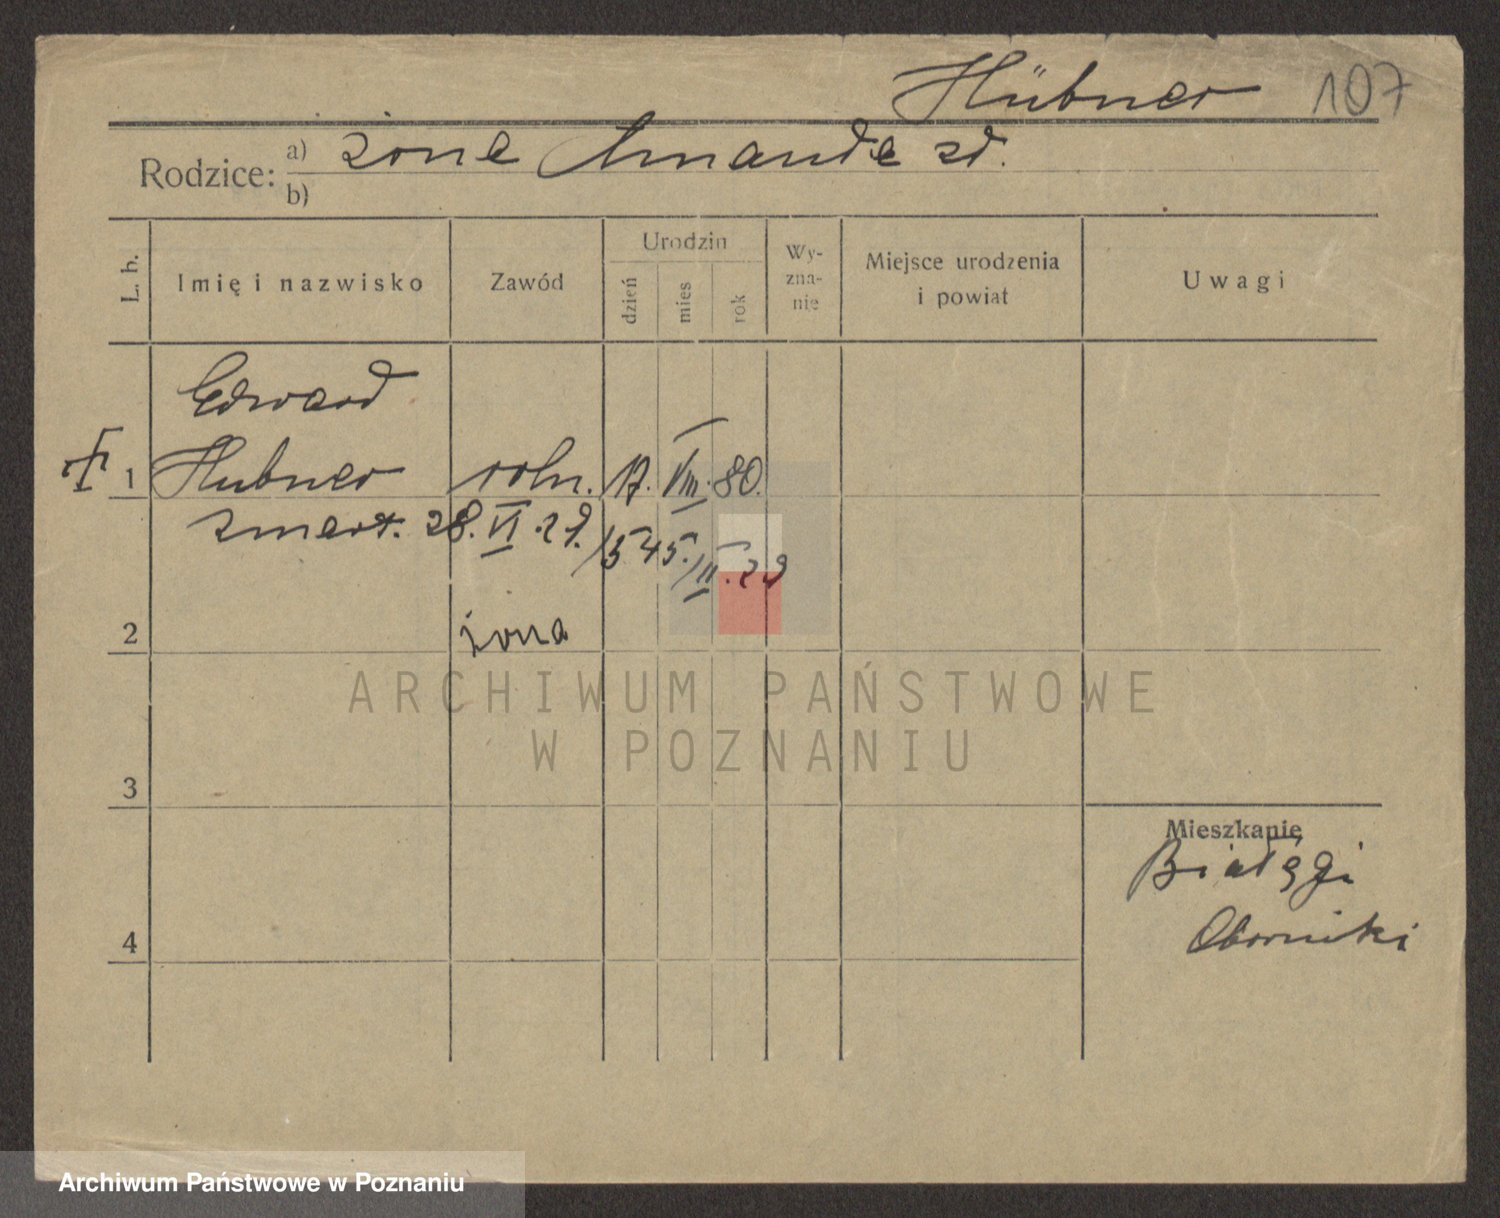 Hübner 107
Rodzice: a) żona Amanda zd.
b)
L. b. Imię i nazwisko Zawód Urodzin dzień mies rok Wy-zna-nie Miejsce urodzenia i powiat Uwagi
Edward
1 Hubner roln. 17. VIII. 80.
zmarł. 28. VI. 29. /545./II. 29
2 żona
ARCHIWUM PAŃSTWOWE
W POZNANIU
3
Mieszkanie
Białęgi
Oborniki
4
Archiwum Państwowe w Poznaniu